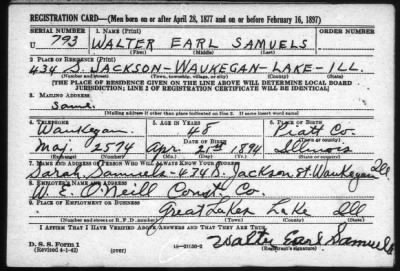 REGISTRATION CARD—(Men born on or after April 28, 1877 and on or before February 16, 1897)
SERIAL NUMBER 1. NAME (Print) ORDER NUMBER
U 793 WALTER EARL SAMUELS
(First) (Middle) (Last)
2. PLACE OF RESIDENCE (Print)
434 S. JACKSON-WAUKEGAN-LAKE-ILL.
(Number and street) (Town, township, village, or city) (County) (State)
[THE PLACE OF RESIDENCE GIVEN ON THE LINE ABOVE WILL DETERMINE LOCAL BOARD
JURISDICTION; LINE 2 OF REGISTRATION CERTIFICATE WILL BE IDENTICAL]
3. MAILING ADDRESS
Same.
[Mailing address if other than place indicated on line 2. If same insert word same]
4. TELEPHONE 5. AGE IN YEARS 6. PLACE OF BIRTH
Waukegan 48 Piatt Co.
DATE OF BIRTH (Town or county)
Maj. 2574 Apr. 21st 1894 Illinois
(Exchange) (Number) (Mo.) (Day) (Yr.) (State or country)
7. NAME AND ADDRESS OF PERSON WHO WILL ALWAYS KNOW YOUR ADDRESS
Sarah Samuels-434 S. Jackson St. Waukegan Ill
8. EMPLOYER'S NAME AND ADDRESS
W. E. O'Neill Const. Co.
9. PLACE OF EMPLOYMENT OR BUSINESS
Great Lakes Lake Ill
(Number and street or R. F. D. number) (Town) (County) (State)
I AFFIRM THAT I HAVE VERIFIED ABOVE ANSWERS AND THAT THEY ARE TRUE.
D. S. S. Form 1
(Revised 4-1-42) (over) Walter Earl Samuels
(Registrant's signature)